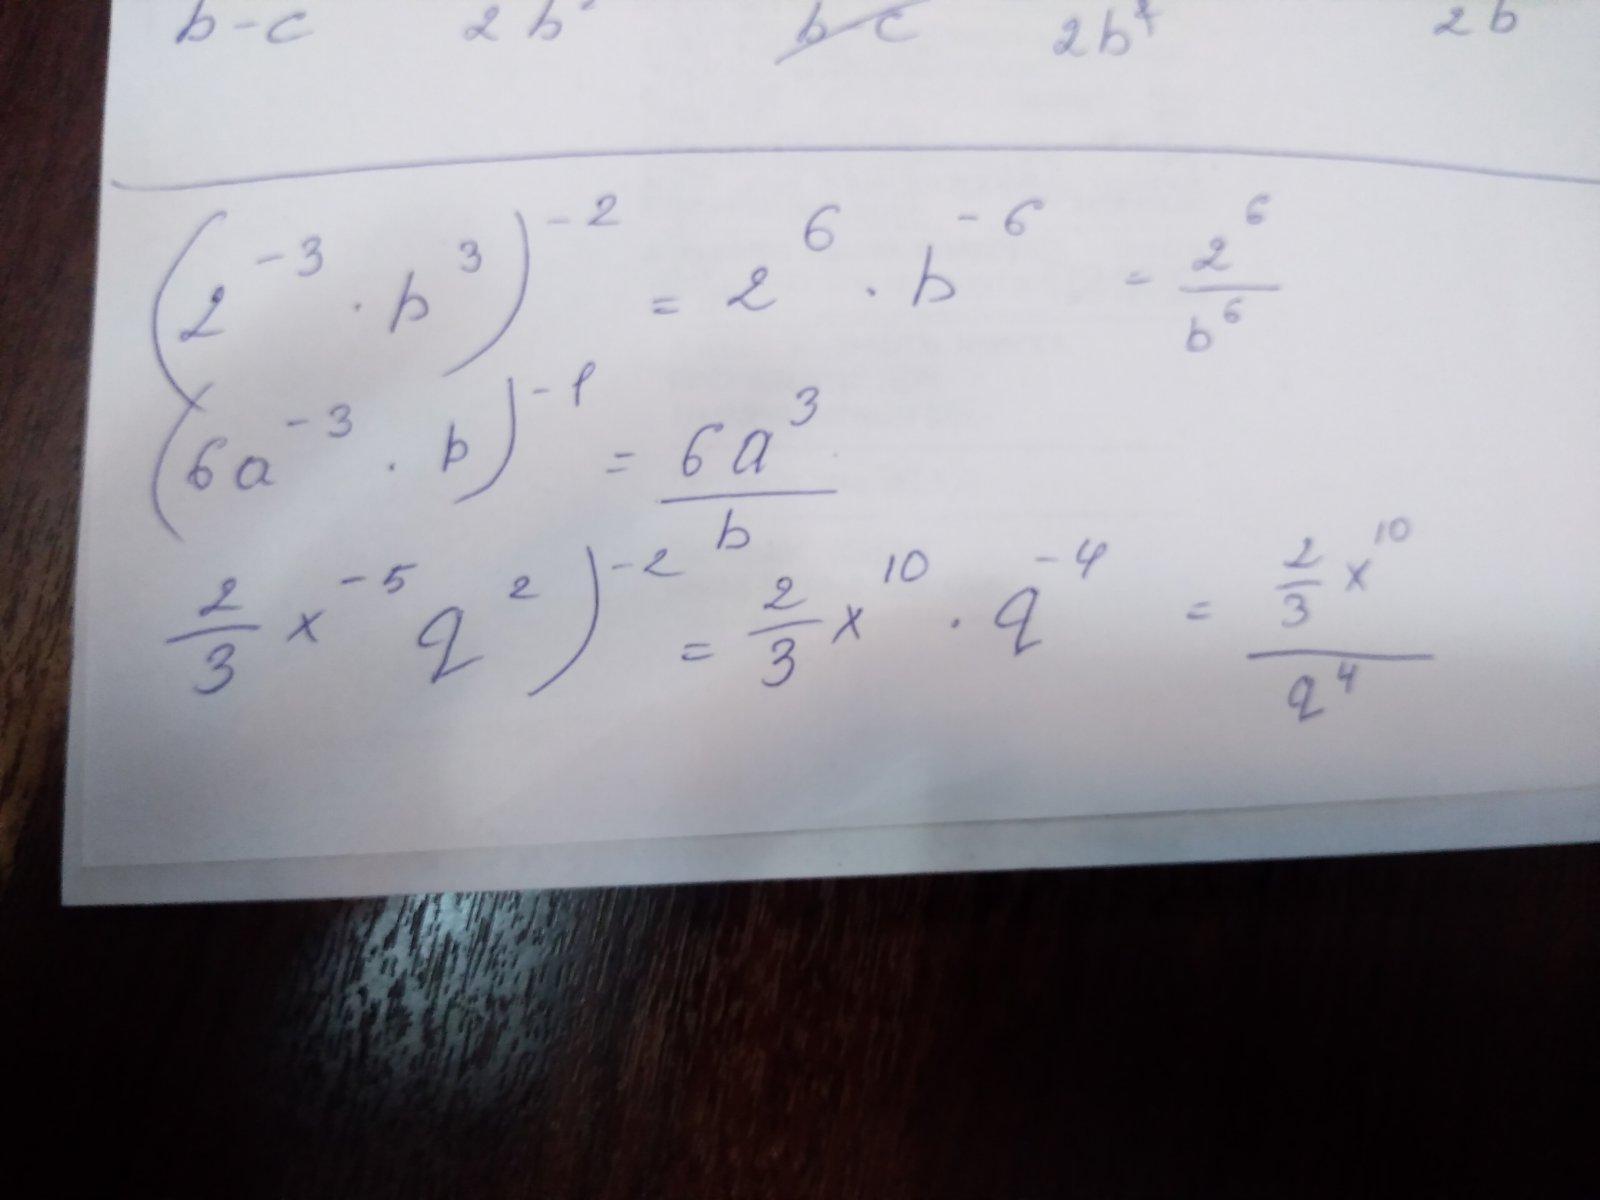 b-c 2b b-c 2b 2b
(2^-3 · b^3)^-2 = 2^6 · b^-6 = 2^6/b^6
(6a^-3 · b)^-1 = 6a^3/b
2/3 x^-5 q^2)^-2 = 2/3 x^10 · q^-4 = 2/3 x^10/q^4